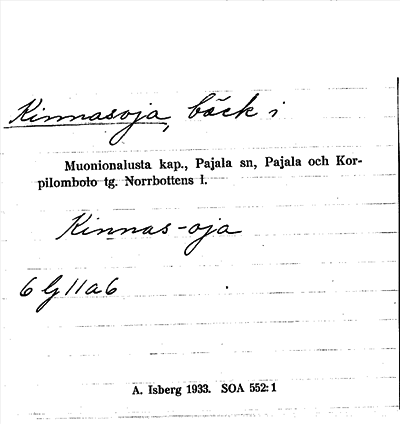 Kinnasoja, bäck i
Muonionalusta kap., Pajala sn, Pajala och Kor-
pilombolo tg. Norrbottens l.
Kinnas-oja
6 lj 11 a 6
A. Isberg 1933. SOA 552:1